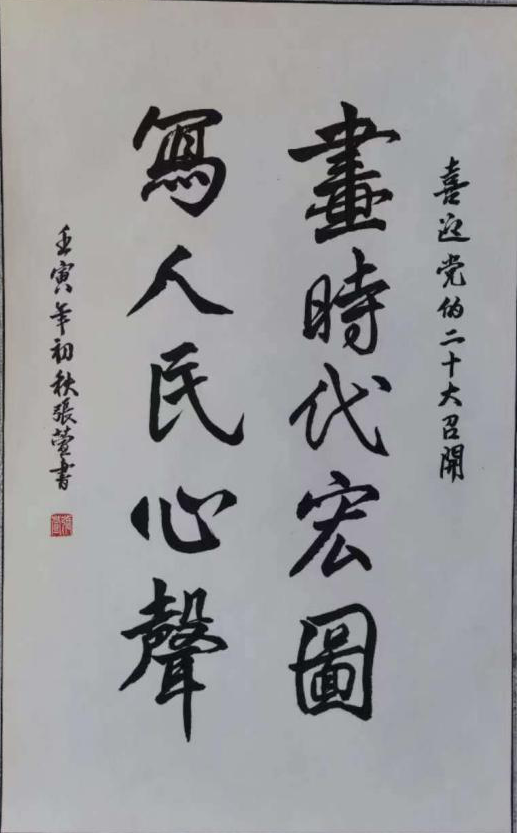 喜迎党的二十大召開
畫時代宏圖
寫人民心聲
壬寅年初秋張瑩書